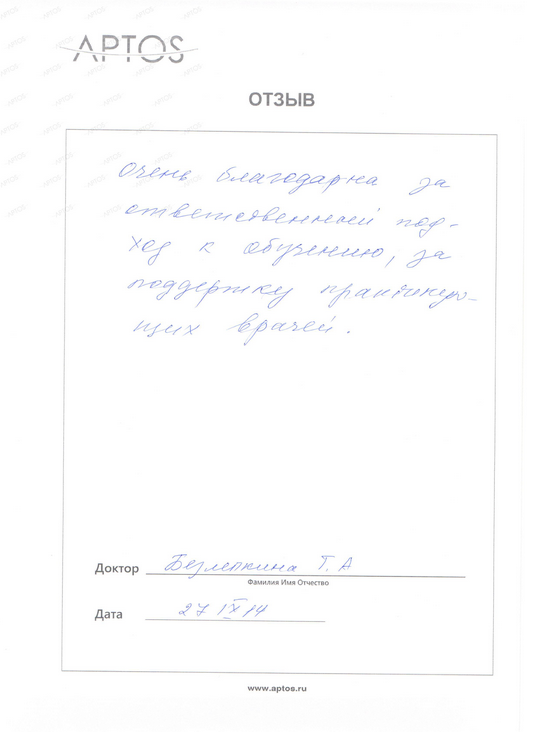 APTOS
ОТЗЫВ
Очень благодарна за
ответственный под-
ход к обучению, за
поддержку практикую-
щих врачей.
Доктор Безлепкина Т. А
Фамилия Имя Отчество
Дата 27 IX 14
www.aptos.ru